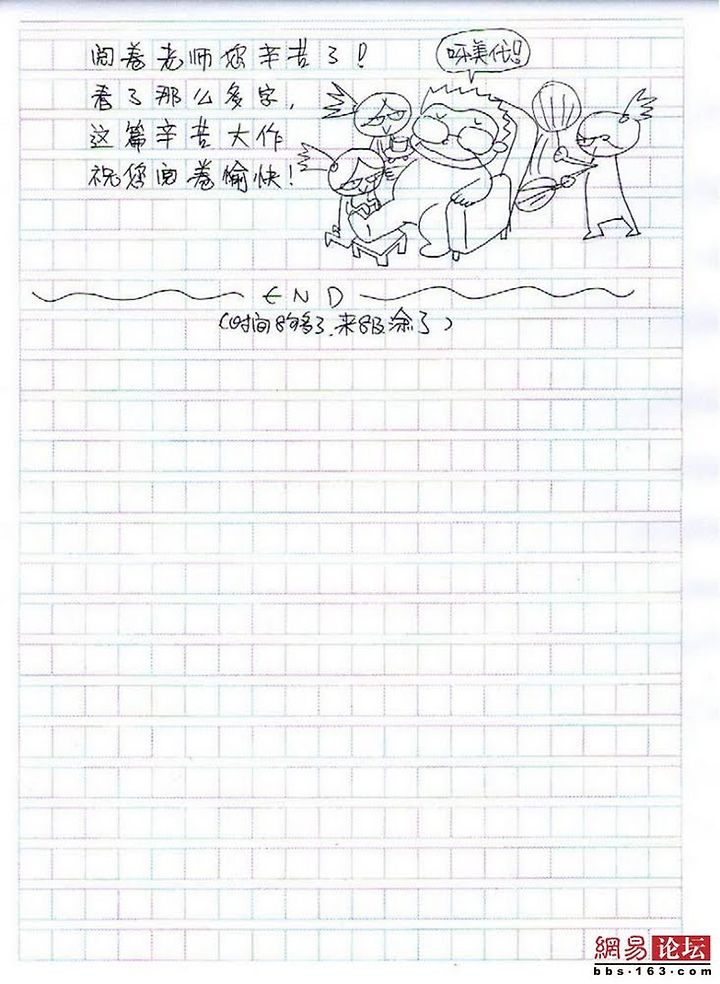 阅卷老师您辛苦了!
看了那么多字,
这篇辛苦大作
祝您阅卷愉快!
呀美代!!
END
(时间够多了.来乱涂了)
網易论坛
bbs·163.com